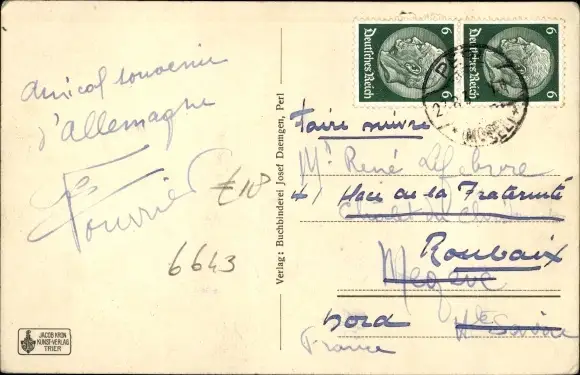 Amical souvenir
d'Allemagne
Fouvrier
£10
6643
JACOB KRON
KUNST-VERLAG
TRIER
Verlag: Buchbinderei Josef Daemgen, Perl
Deutsches Reich 6 6
Deutsches Reich 6 6
PERL
(MOSEL)
Faire suivre
Mr René Lefebvre
41 Haie de la Fraternité
Roubaix
Megève
Nord Hte Savoie
France